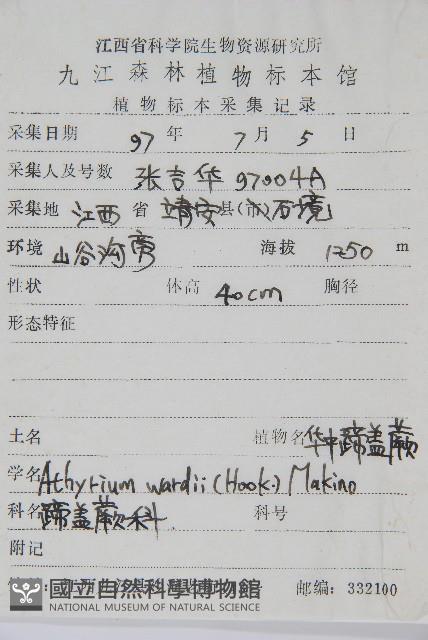 江西省科学院生物资源研究所
九江森林植物标本馆
植物标本采集记录
采集日期 97 年 7 月 5 日
采集人及号数 张吉华 97004A
采集地 江西 省 靖安 县(市) 石境
环境 山谷沟旁 海拔 1250 m
性状 体高 40cm 胸径
形态特征
土名 植物名 华中蹄盖蕨
学名 Athyrium wardii (Hook.) Makino
科名 蹄盖蕨科 科号
附记
邮编：332100
國立自然科學博物館
NATIONAL MUSEUM OF NATURAL SCIENCE